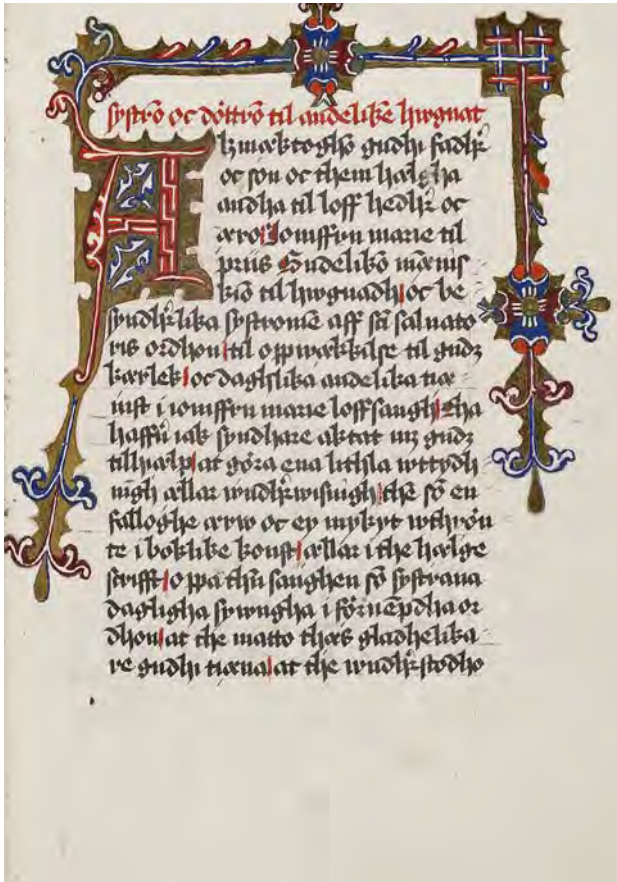 systrō oc döttrō til andelike hwgnat
Alzmæktoghō gudhi fadhr
oc son oc them hælgha
andha til loff hedhr oc
æro Jomffrv marie til
priis Gudelikō mænis
kiō til hwgnadh oc be
syndhrlika systromē aff sti saluato
ris ordhon til oppwækkilse til gudz
kærlek oc daghlika andelika tiæ
nist i iomffrv marie loffsangh Tha
haffr iak syndhare aktat mz gudz
tillhiælp at göra ena lithla wttydh
nīgh ællar wndhrwisnīgh the sō en
falloghe ærw oc ey mykyt wthrön
te i boklike konst ællar i the hælge
scrifft oppa thn sanghen sō systrana
daglígha sywngha i förnēpdha or
dhon at the matto thæs gladhelika
re gudhi tiæna at the wndhrstodho